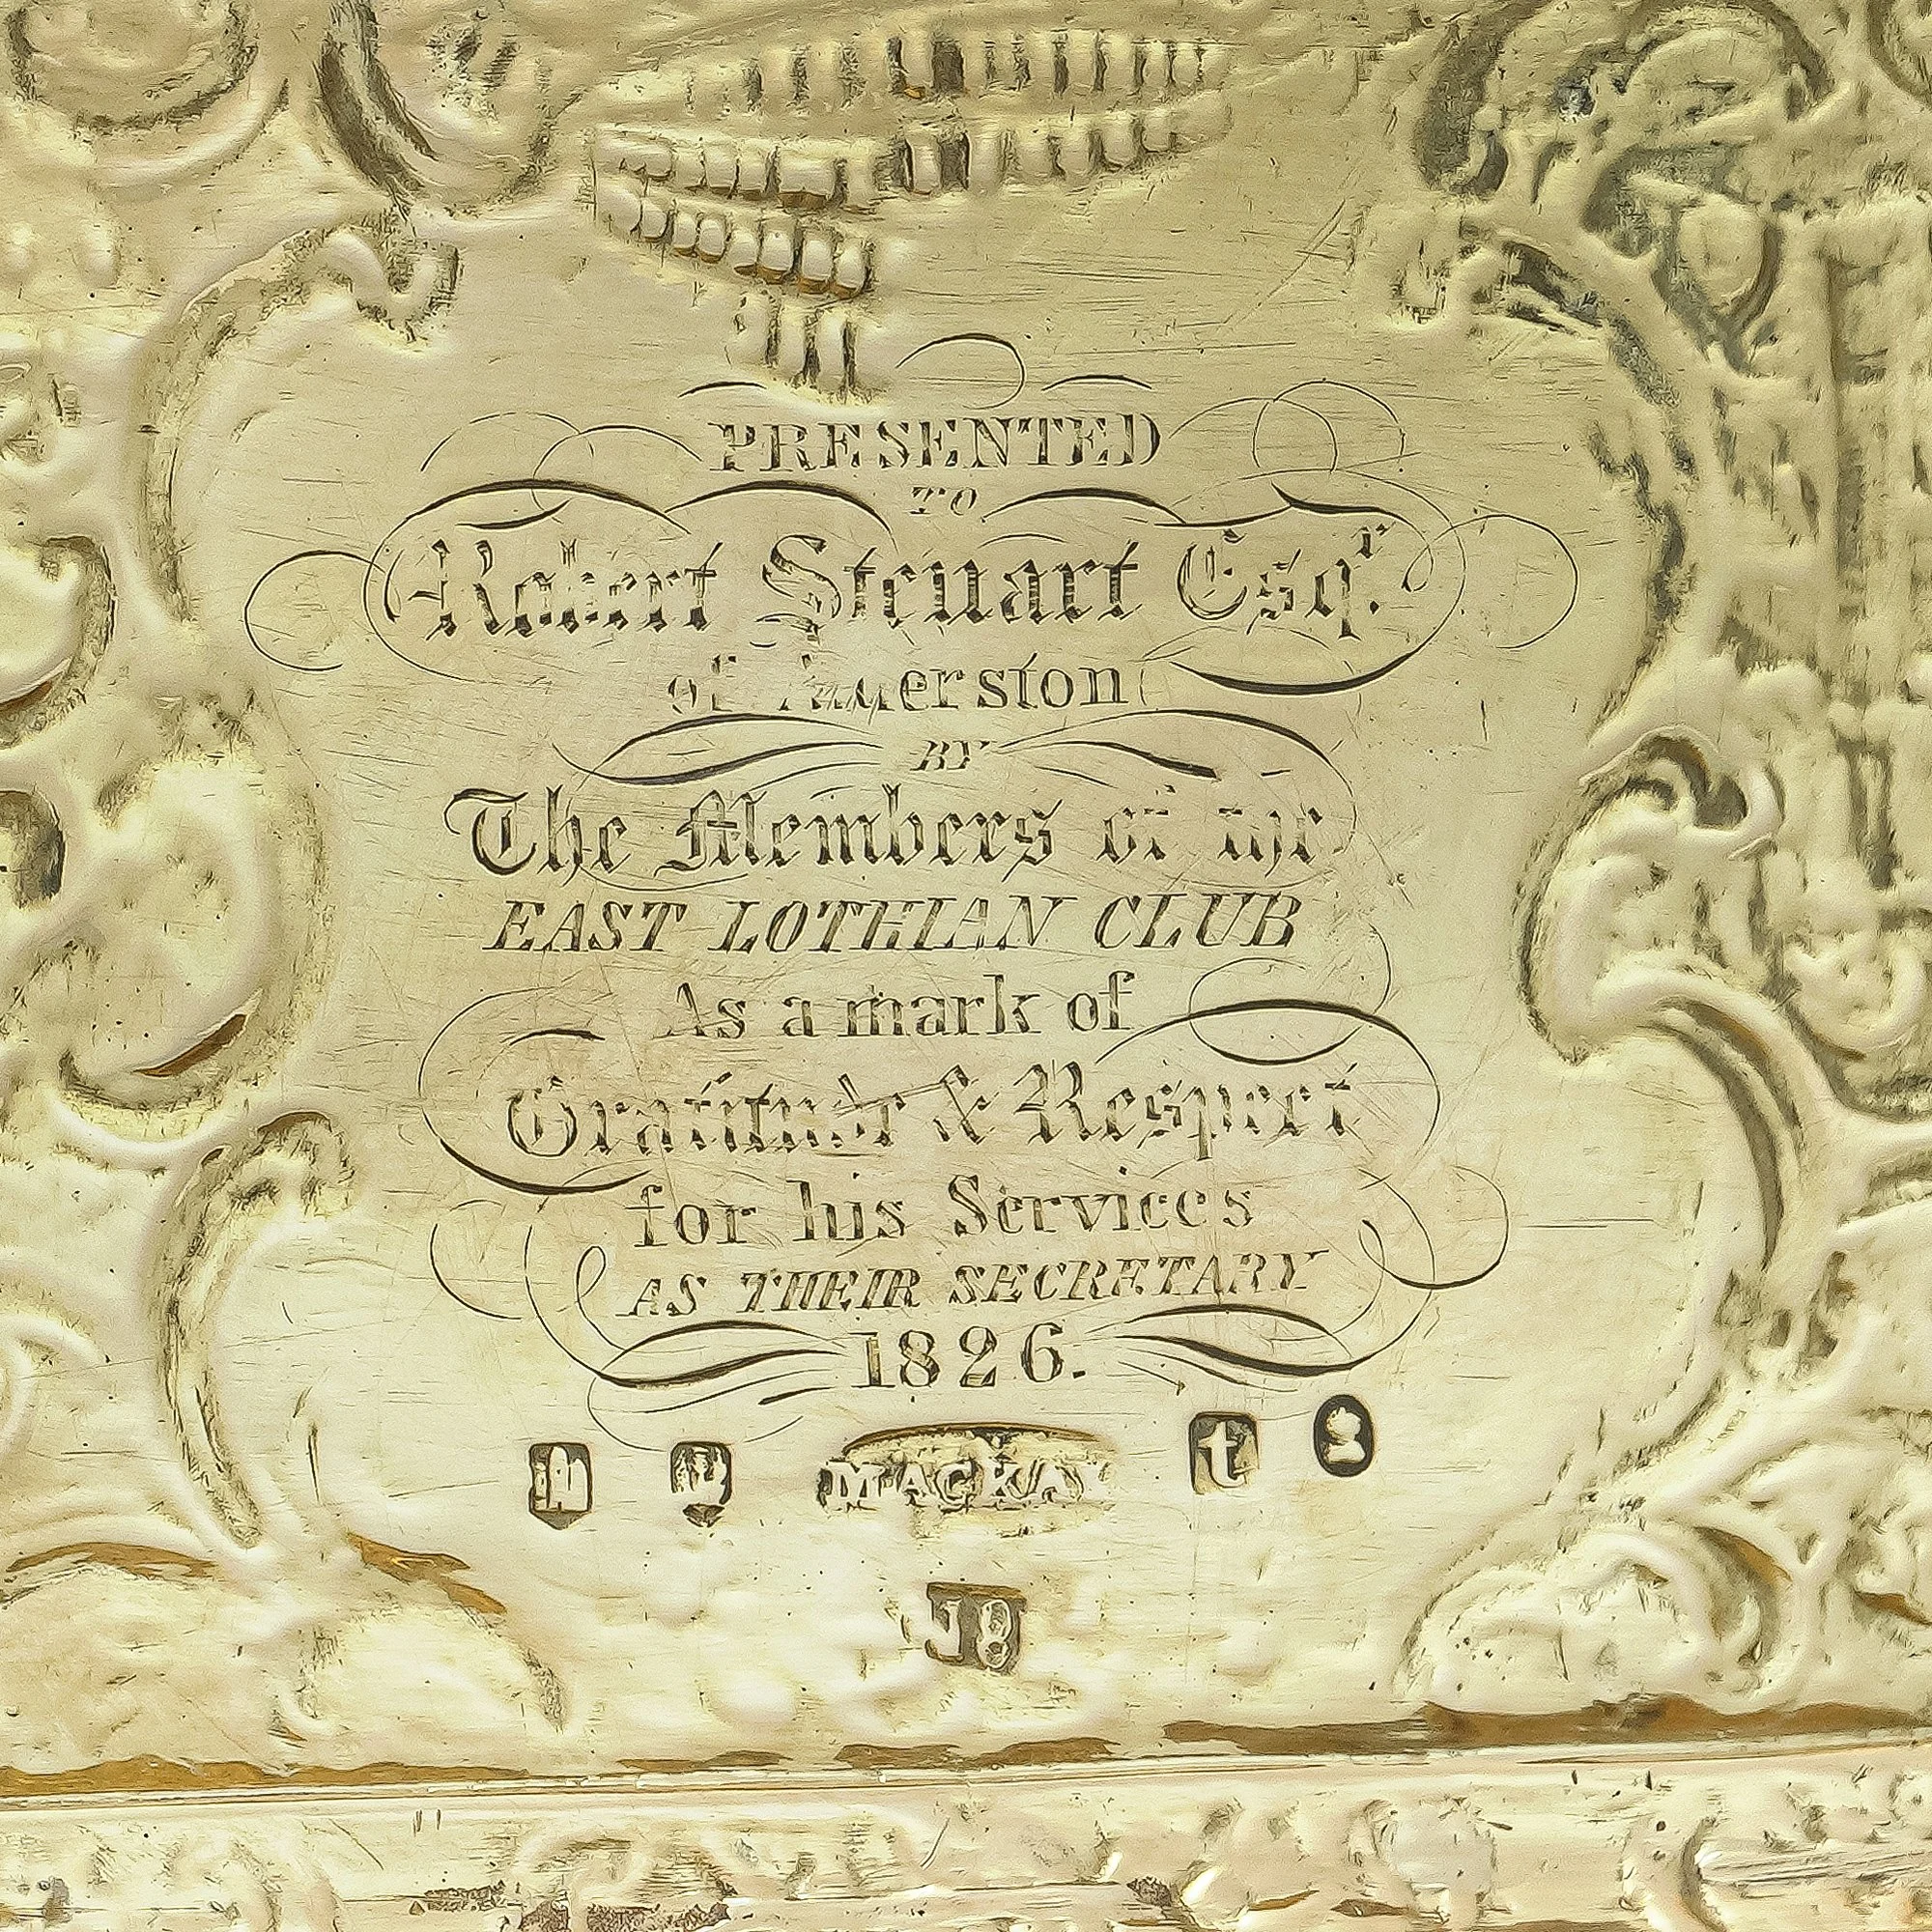 PRESENTED
TO
Robert Steuart Esqr.
of
BY
The Members of the
EAST LOTHIAN CLUB
As a mark of
Gratitude & Respect
for his Services
AS THEIR SECRETARY
1826.
MACKAY t